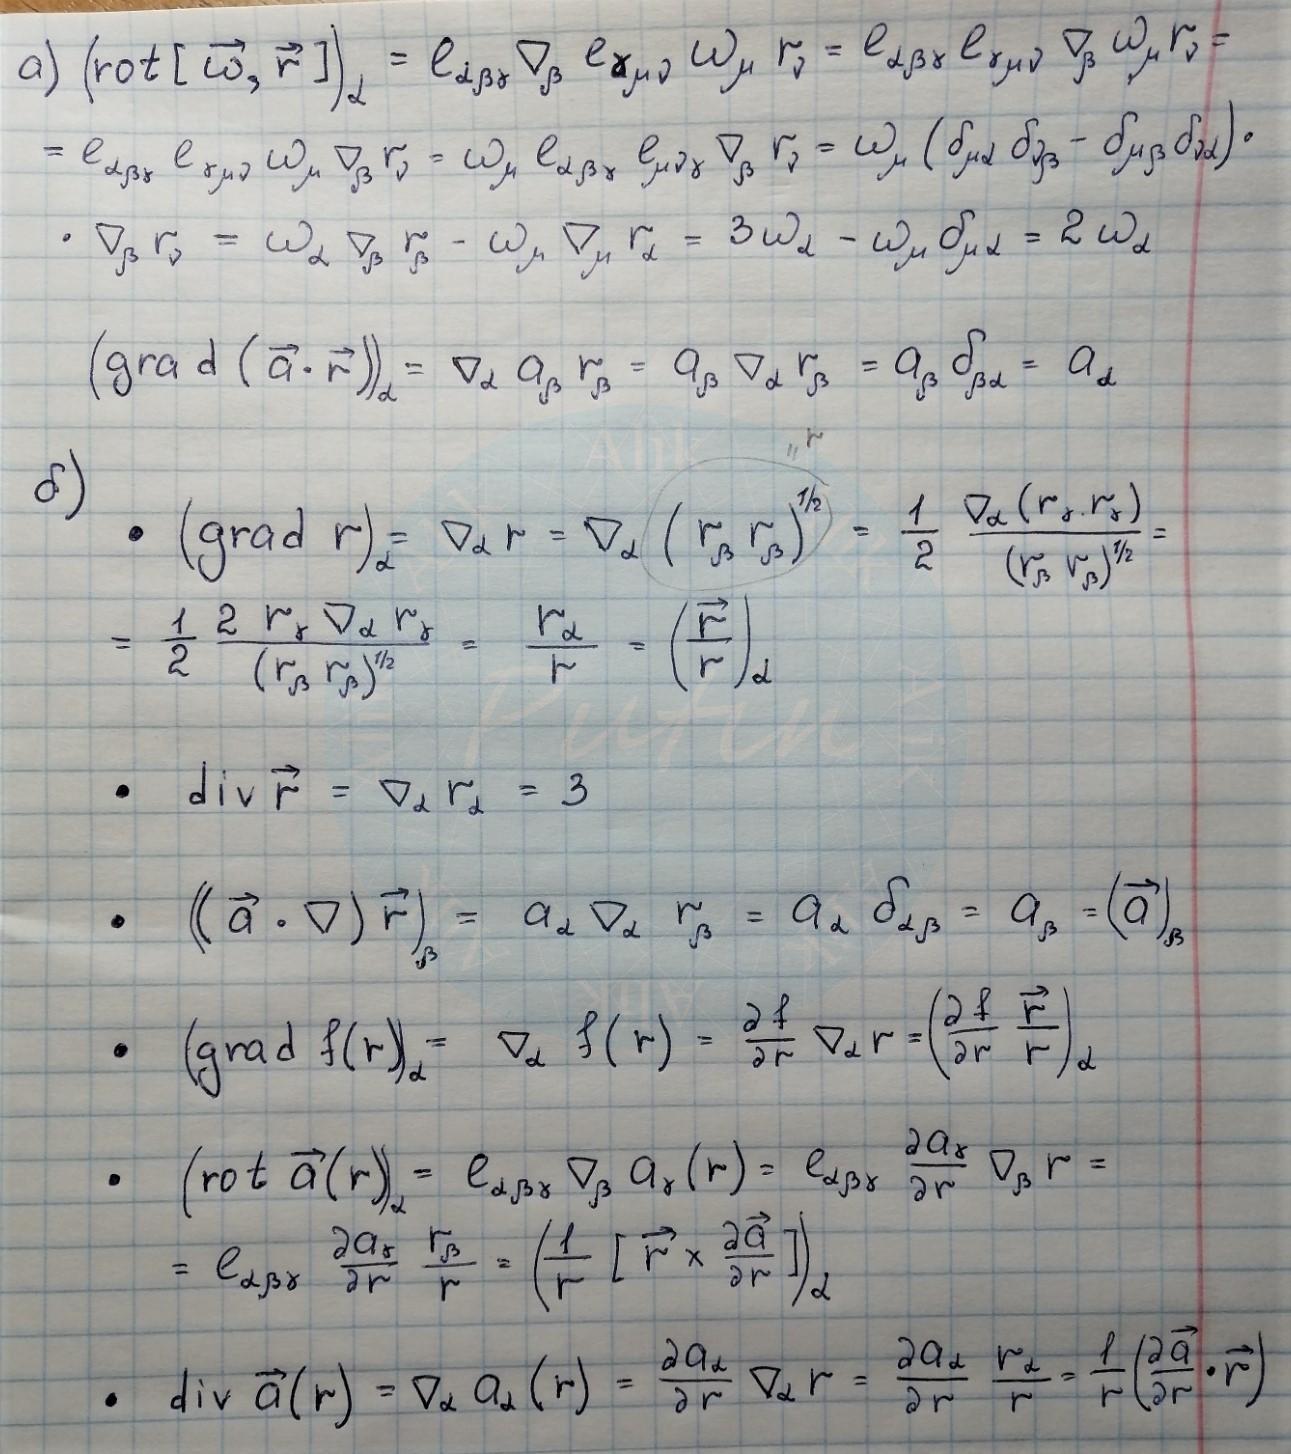 а) (rot [ω⃗, r⃗ ])_α = e_αβγ ∇_β e_γμν ω_μ r_ν = e_αβγ e_γμν ∇_β ω_μ r_ν =
= e_αβγ e_γμν ω_μ ∇_β r_ν = ω_μ e_αβγ e_μνγ ∇_β r_ν = ω_μ (δ_μα δ_νβ - δ_μβ δ_να) ·
· ∇_β r_ν = ω_α ∇_β r_β - ω_μ ∇_μ r_α = 3ω_α - ω_μ δ_μα = 2 ω_α
(grad (a⃗ · r⃗))_α = ∇_α a_β r_β = a_β ∇_α r_β = a_β δ_βα = a_α
"r
б)
• (grad r)_α = ∇_α r = ∇_α (r_β r_β)^1/2 = 1/2 ∇_α (r_γ · r_γ) / (r_β r_β)^1/2 =
= 1/2 2 r_γ ∇_α r_γ / (r_β r_β)^1/2 = r_α / r = (r⃗ / r)_α
• div r⃗ = ∇_α r_α = 3
• ((a⃗ · ∇) r⃗)_β = a_α ∇_α r_β = a_α δ_αβ = a_β = (a⃗)_β
• (grad f(r))_α = ∇_α f(r) = ∂f/∂r ∇_α r = (∂f/∂r r⃗/r)_α
• (rot a⃗(r))_α = e_αβγ ∇_β a_γ(r) = e_αβγ ∂a_γ/∂r ∇_β r =
= e_αβγ ∂a_γ/∂r r_β/r = (1/r [ r⃗ × ∂a⃗/∂r ])_α
• div a⃗(r) = ∇_α a_α(r) = ∂a_α/∂r ∇_α r = ∂a_α/∂r r_α/r = 1/r (∂a⃗/∂r · r⃗)